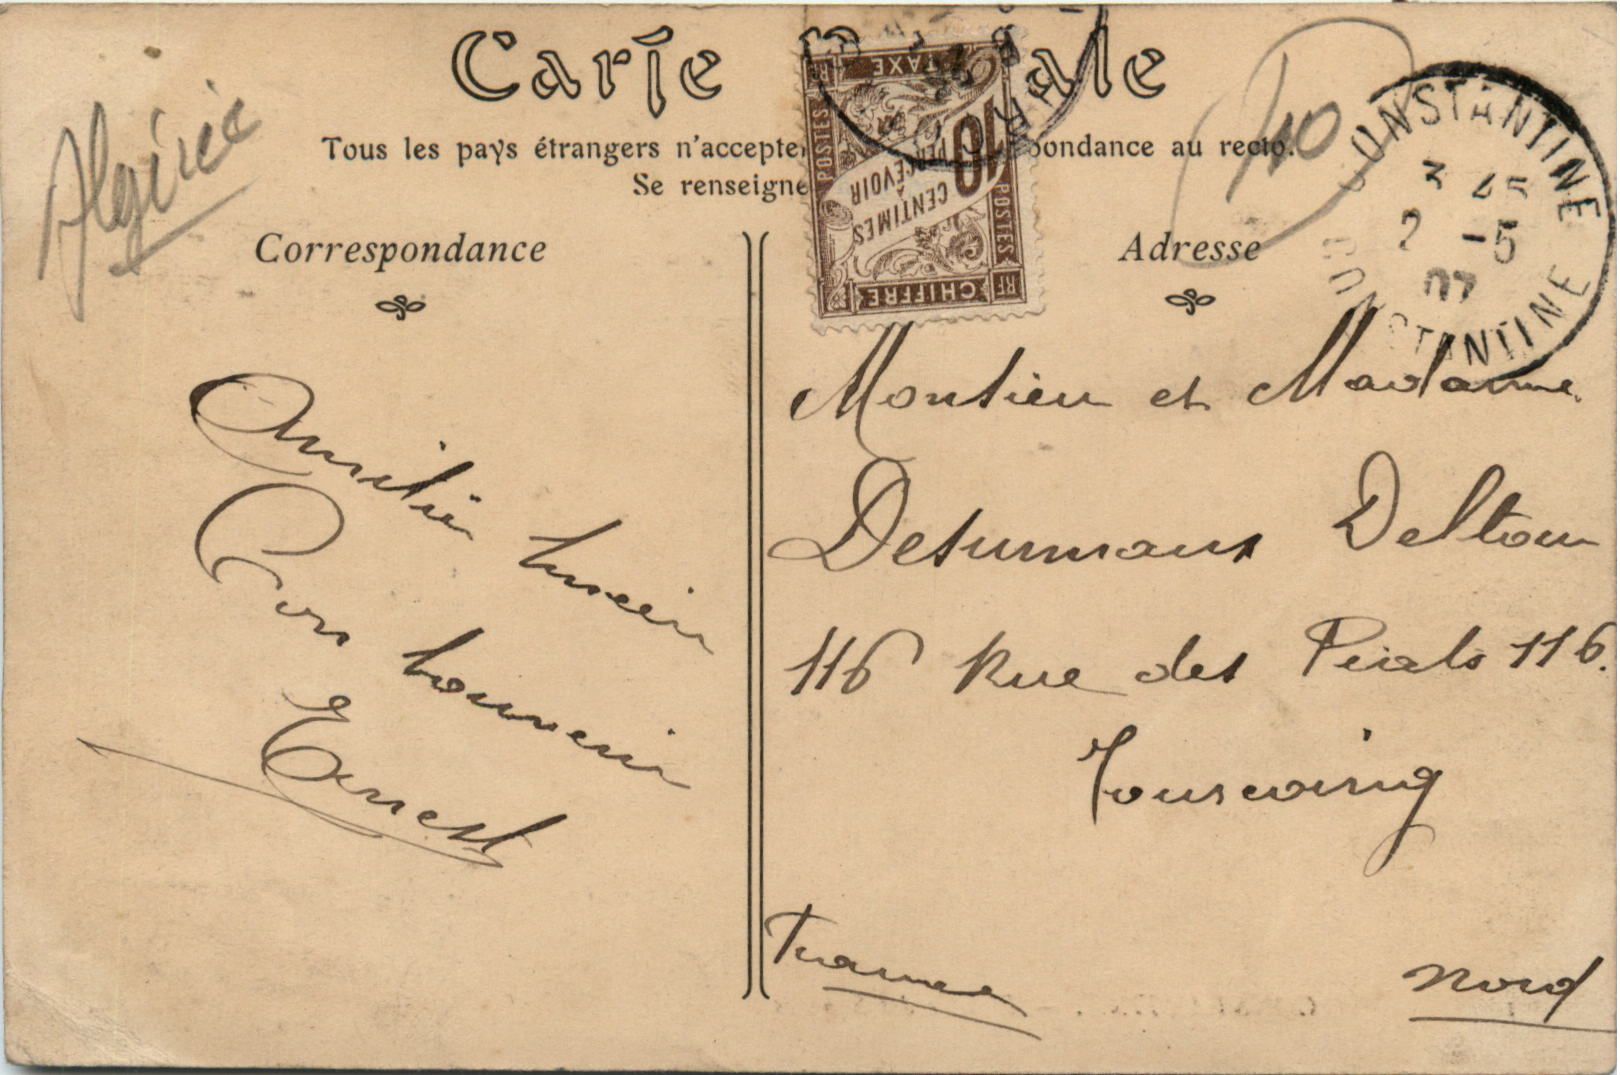 Carte Postale
Tous les pays étrangers n'accepte pondance au recto.
Se renseigne
Correspondance
Adresse
Algérie
TAXE
POSTES
10
CENTIMES
À
PERCEVOIR
POSTES
CHIFFRE
RF
RF
CONSTANTINE
3 45
2 -5
07
CONSTANTINE
Amitiés
bon souvenir
Ernest
Monsieur et Madame
Desurmaux Deltour
116 Rue des Piats 116.
Tourcoing
France
Nord